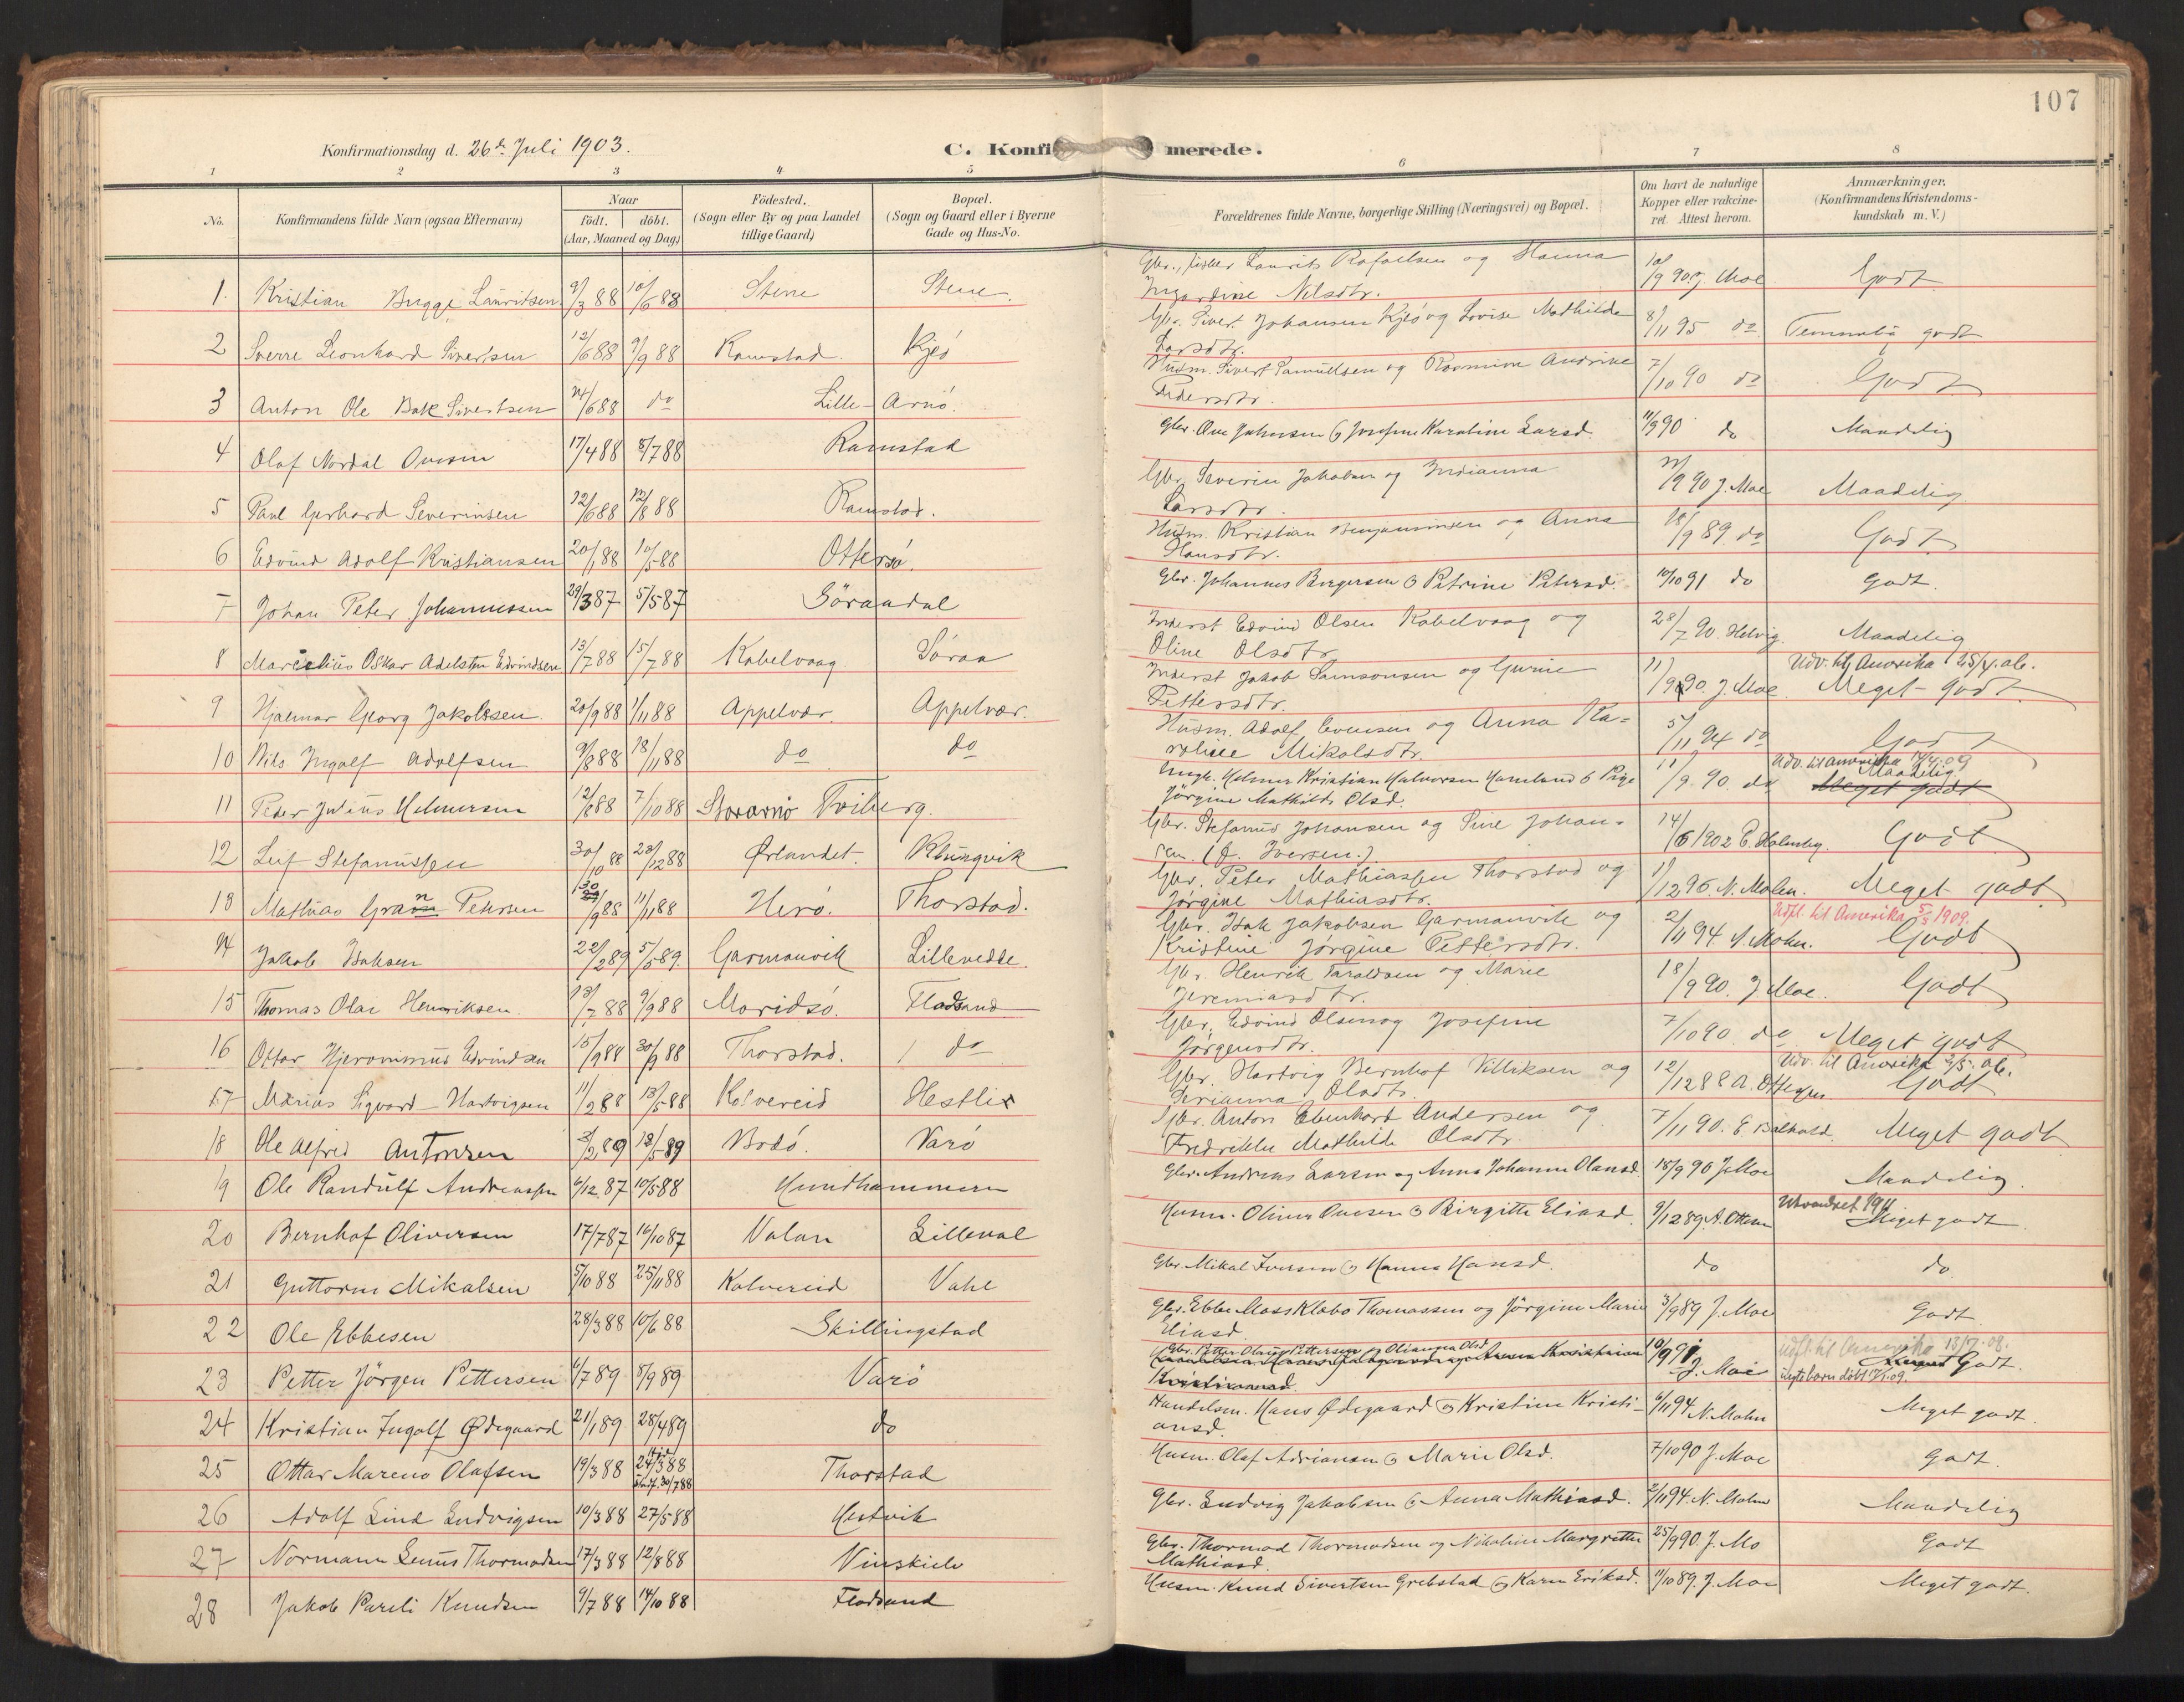 107
Konfirmationsdag d. 26de Juli 1903.
C. Konfirmerede.
1 2 3 4 5 6 7 8
No.
Konfirmandens fulde Navn (ogsaa Efternavn)
Naar
födt. döbt.
(Aar, Maaned og Dag)
Födested.
(Sogn eller By og paa Landet
tillige Gaard)
Bopæl.
(Sogn og Gaard eller i Byerne
Gade og Hus-No.
Forældrenes fulde Navne, borgerlige Stilling (Næringsvei) og Bopæl.
Om havt de naturlige
Kopper eller vakcine-
ret. Attest herom.
Anmærkninger.
(Konfirmandens Kristendoms-
kundskab m. V.)
1. Kristian Bugge Lauritsen 9/3 88 10/6 88 Stene Stene. Gbr., fisker Laurits Rafaelsen og Hanna 10/9 90 J. Moe Godt
Nilsdtr.
2 Sverre Leonhard Sivertsen 12/6 88 9/9 88 Ramstad. Kjeö Gbr. Sivert Johansen Kjeö og Lovise Mathilde 8/11 95 do Temmelig godt
Larsdtr.
3 Anton Ole Bak Sivertsen 24/6 88 do Lille-Arnö. Husm. Sivert Samuelsen og Rasmine Andrine 7/10 90 do Godt
Pedersdtr.
4 Olaf Nordal Ovesen 17/4 88 8/7 88 Ramstad Gbr. Ove Johnsen & Josefine Karoline Larsd. 11/9 90 do Maadelig
5 Paul Gerhard Severinsen 12/6 88 12/8 88 Ramstad. Gbr. Severin Jakobsen og Indianna 22/9 90 J. Moe Maadelig
Larsdtr.
6 Edvind Adolf Kristiansen 20/1 88 10/5 88 Ottersö. Husm. Kristian Benjaminsen og Anna 18/9 89 do Godt
Hansdtr.
7 Johan Peter Johannessen 29/3 87 5/5 87 Söraadal Gbr. Johannes Bergersen & Petrine Petersd. 10/10 91 do Godt.
8 Marselius Oskar Adelsten Edvindsen 13/7 88 15/7 88 Kabelvaag Söraa Inderst Edvind Olsen Kabelvaag og 28/7 90. Helvig. Maadelig
Oline Olsdtr. Udv. til Amerika 25/4. 06.
9 Hjalmar Georg Jakobsen. 20/9 88 1/11 88 Appelvær. Appelvær. Inderst Jakob Samsonsen og Gurine 11/9 90. J. Moe Meget godt
Pettersdtr.
10 Nils Ingolf Adolfsen 9/8 88 18/11 88 do do Husm. Adolf Evensen og Anna Ka-
roline Mikalsdtr. 5/11 94 do Godt
Udv. til Amerika 14/4. 09
11 Peder Julius Helmersen 12/8 88 7/10 88 Storarnö Fribierg. Ungk. Helmer Kristian Halvorsen Hamland & Pige 11/9. 90. do Maadelig
Jörgine Mathilde Olsd. Meget godt
12 Leif Stefanussen 30/10 88 28/12 88 Ørlandet. Klungvik Gbr. Stefanus Johansen og Sine Johan-
sen. (f. Iversen.) 14/6 1902 E. Holmby. Godt
13 Mathias Gran Petersen 30/9 88 11/11 88 Herö. Thorstad. Gbr. Peter Mathiassen Thorstad og 11/12 96. N. Molen. Meget godt
Jörgine Mathiasdtr.
Udfl. til Amerika 5/5 1909.
14 Jakob Isaksen 22/2 89 5/5 89. Garmanvik Lillevedde. Gbr. Isak Jakobsen Garmanvik og 2/11 94. N. Mohn. Godt
Kristine Jörgine Pettersdtr.
15 Thomas Olai Henriksen. 13/7 88 9/9 88 Moridsö. Flodsand Gbr. Henrik Taraldsen og Marie 18/9 90. J. Moe. Godt
Jeremiasdtr.
16 Ottar Hjeronimus Edvindsen 15/9 88 30/9 88 Thorstad. do Gbr. Edvind Olsen og Josefine 7/10 90. do Meget godt
Jörgensdtr. Udv. til Amerika 2/5. 06.
17 Marius Sigvard Hartvigsen 11/2 88 13/5 88 Kolvereid Hestlie Gbr. Hartvig Bernhof Villiksen og 12/12 88 A. Ottesen Godt
Serianna Olsdtr.
18 Ole Alfred Antonsen 3/2 89 12/5 89 Bodö. Varö Gbr. Anton Ebenhard Andersen og 7/11 90. Meget godt
Fredrikke Mathilde Olsdtr.
19 Ole Randulf Andreassen 6/12 87 10/5 88 Hundhammeren Gbr. Andreas Larsen og Anna Johanna Olausd. 18/9 90 J. Moe Maadelig.
Utvandret 1911
20 Bernhof Oliversen 17/7 87 16/10 87 Valan Lilleval Husm. Oliver Ovesen & Birgitte Eliasd. 9/12 89. A. Ottesen Meget godt.
21 Guttorm Mikalsen 5/10 88 25/11 88 Kolvereid Vahl Gbr. Mikal Iversen & Hanna Hansd. do do
22 Ole Ebbesen 28/3 88 10/6 88 Skillingstad Gbr. Ebbe Mass Klæbo Thomassen og Jörgine Marie 3/9 89 J. Moe Godt.
Eliasd.
Udfl. til Amerika 13/7. 08.
23 Petter Jörgen Pettersen 6/7 89 8/9 89 Varö Gbr. Petter Olaus Pettersen og Olianna Olsd. 10/9 91 J. Moe Godt.
24 Kristian Ingolf Ødegaard 21/1 89 28/4 89 do Handelsm. Hans Ødegaard & Kristine Kristi-
ansd. 6/11 94 N. Mohn Meget godt.
25 Ottar Mareno Olafsen 19/3 88 24/3 88 Thorstad Husm. Olaf Adriansen & Marie Olsd. 7/10 90 J. Moe Godt.
26 Adolf Lind Ludvigsen 10/3 88 27/5 88 Hestvik Gbr. Ludvig Jakobsen & Anna Mathiasd. 2/11 94. N. Mohn Maadelig
27 Normann Lenus Thormodsen 17/3 88 12/8 88 Vinskiele Gbr. Thormod Thormodsen og Nikoline Margrethe 25/9 90. J. Mo Godt
Mathiasd.
28 Jakob Pareli Knudsen 9/7 88 14/10 88 Flodsand Husm. Knud Sivertsen Grebstad & Karen Eriksd. 11/10 89. J. Moe Meget godt.